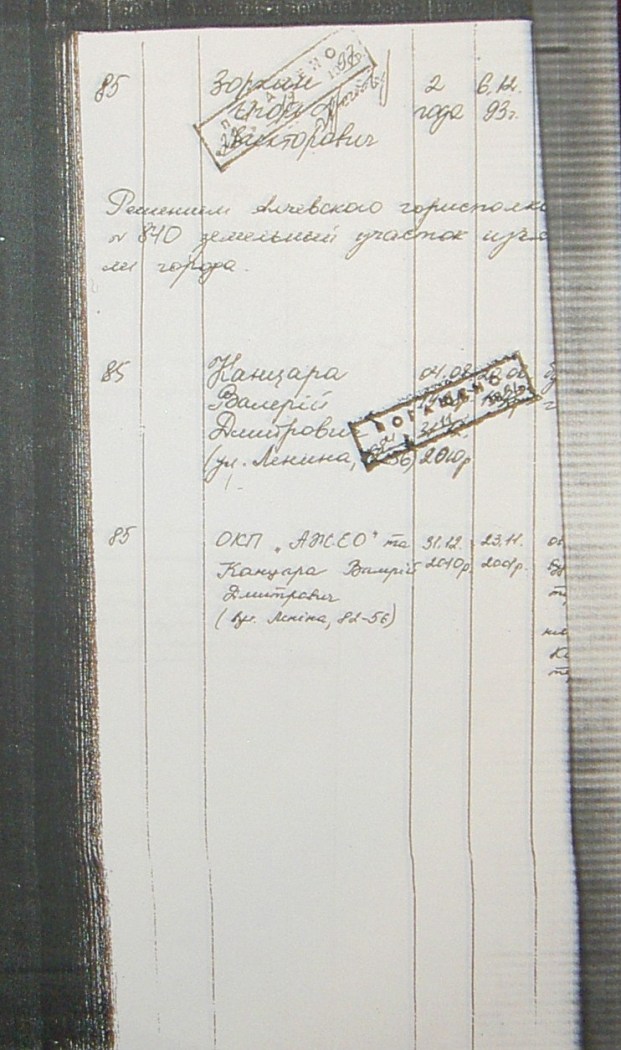 85 Зоркин 2 6.12.
Игорь года 93г.
Викторович
Решением Алчевского горисполко
№ 840 земельный участок изъя
ли города.
85 Канцара 04.08
Валерій
Дмитрович
(ул. Ленина, 56) 2010р
ПОГАШЕНО
85 ОКП „АЖЕО" та 31.12. 23.11.
Канцара Валерій 2010р. 2001р.
Дмитрович
(вул. Леніна, 82-56)